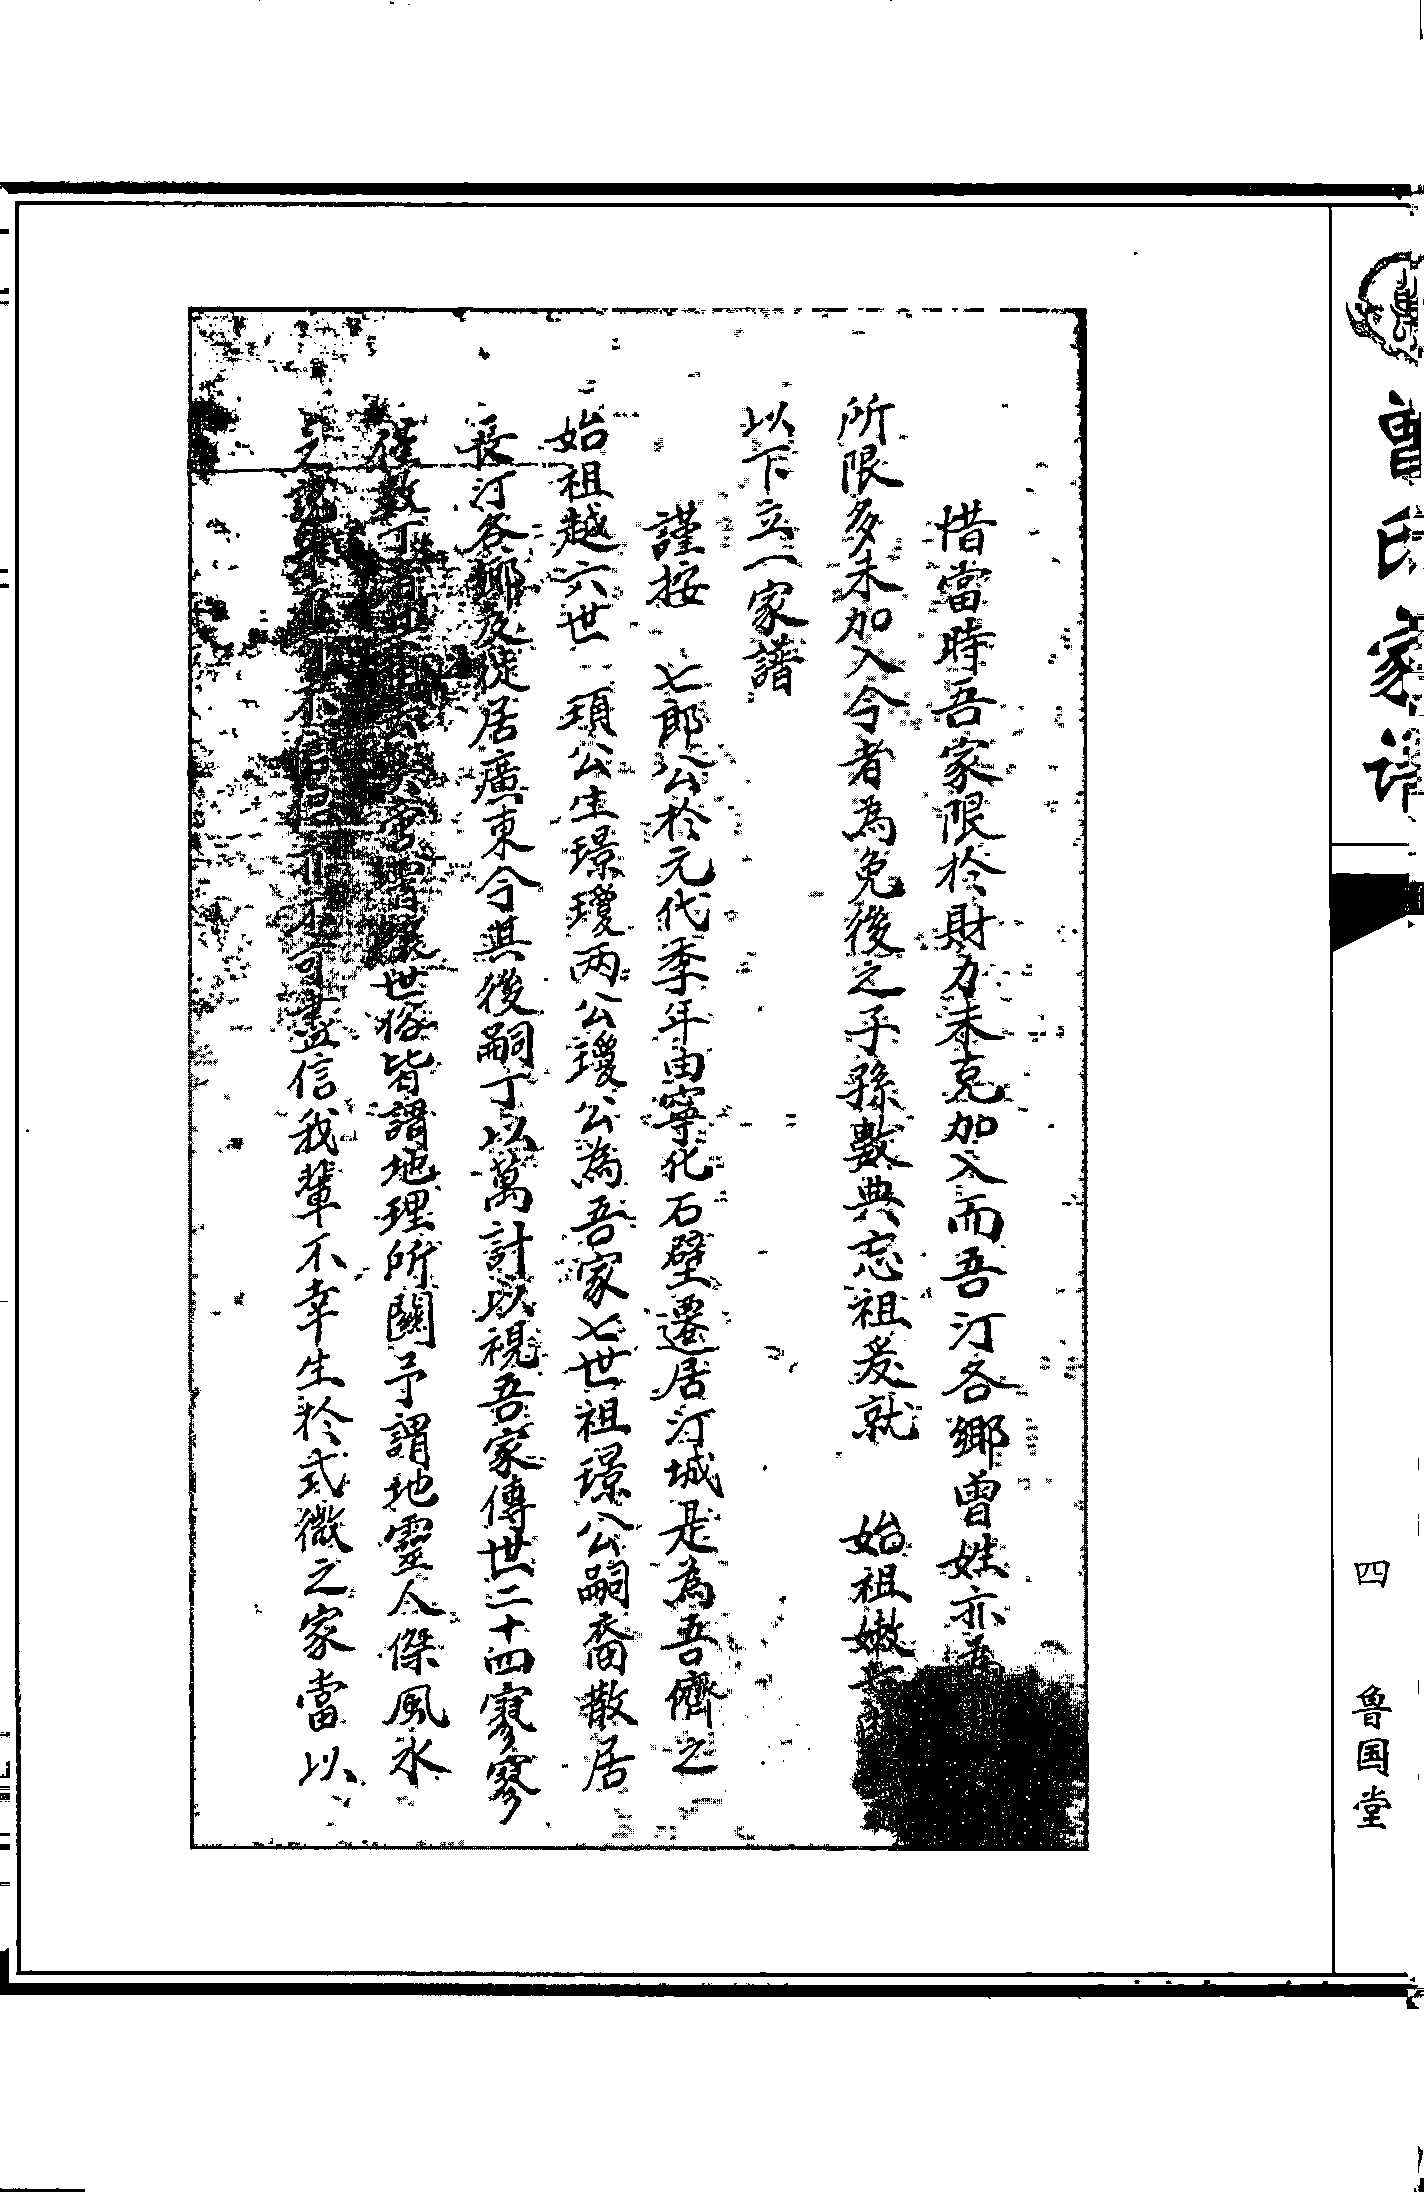 曾氏家谱
四
鲁国堂
惜當時吾家限於財力未克加入而吾汀各鄉曾姓亦為
所限多未加入今者為免後之子孫數典忘祖爰就 始祖嫩
以下立一家譜
謹按 七郎公於元代季年由寧化石壁遷居汀城是為吾儕之
始祖越六世 項公生璟瓊两公瓊公為吾家七世祖璟公嗣裔散居
長汀各鄉及徙居廣東今其後嗣丁以萬計以視吾家傳世二十四寥寥
僅數丁世俗皆謂地理所關予謂地靈人傑風水
之說不可盡信我輩不幸生於式微之家當以